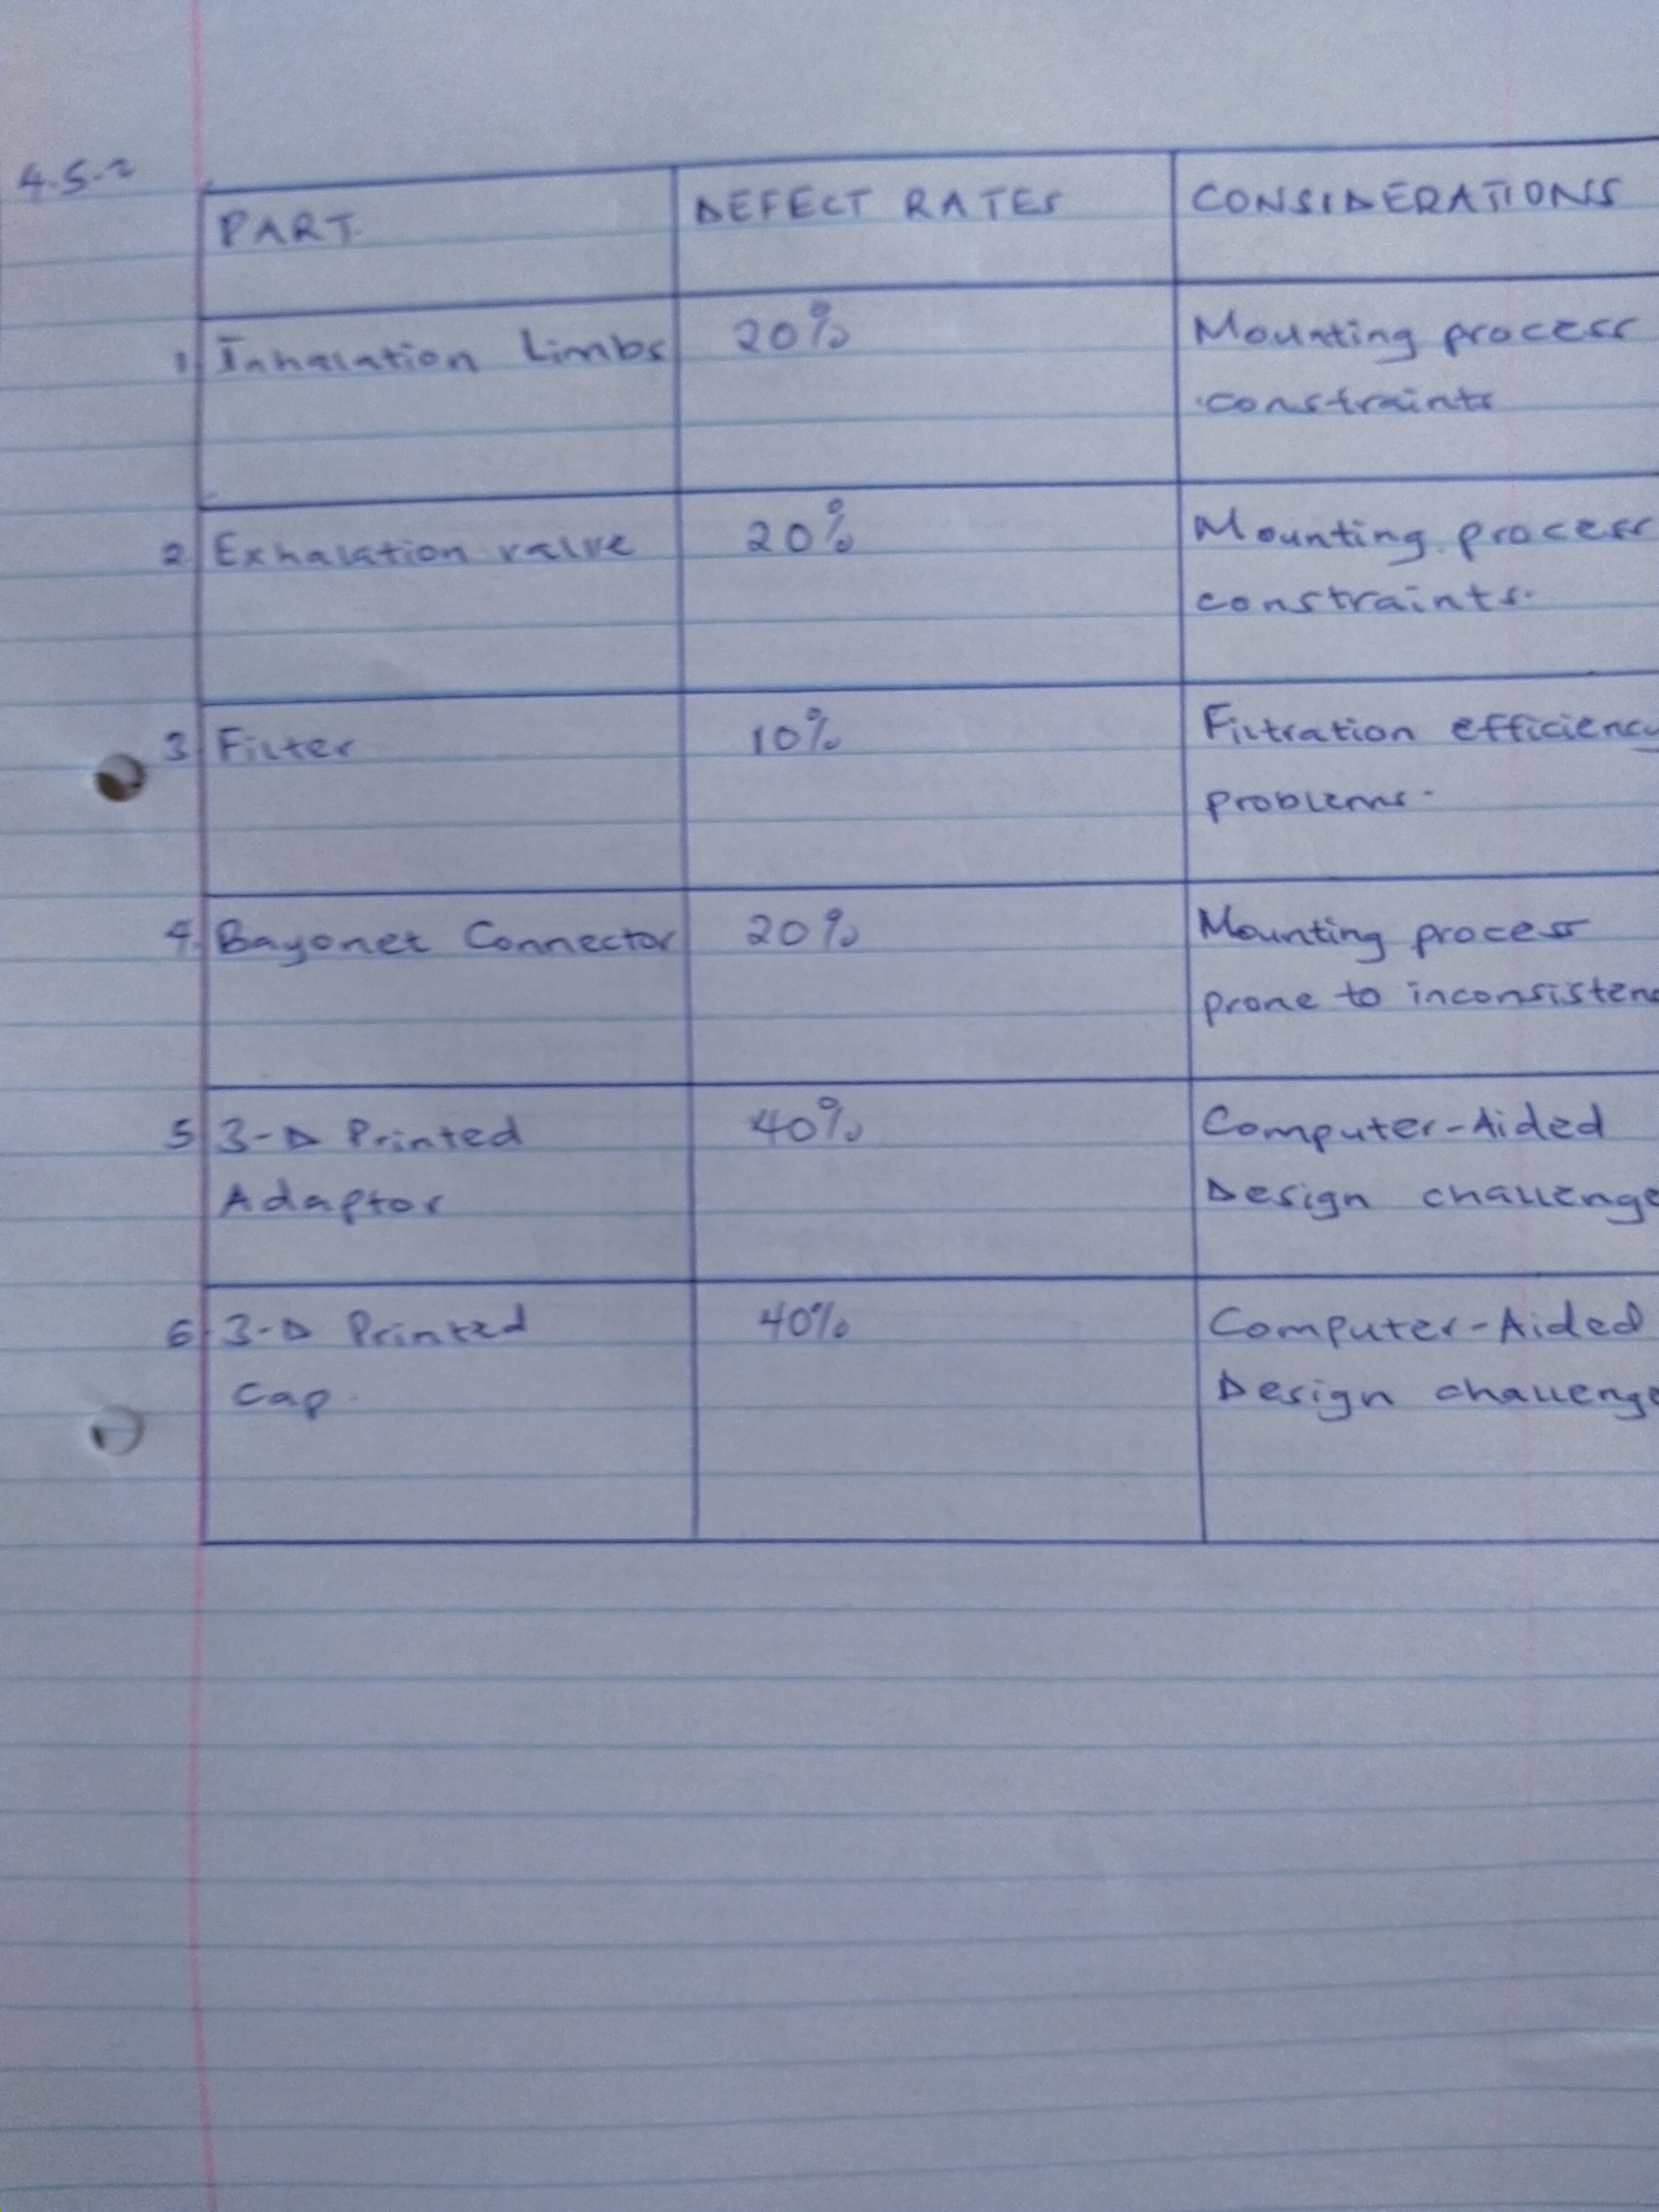 4.5.2
PART. DEFECT RATES CONSIDERATIONS
1. Inhalation Limbs 20% Mounting process
constraints
2. Exhalation valve 20% Mounting process
constraints.
3. Filter 10% Filtration efficiency
problems.
4. Bayonet Connector 20% Mounting process
prone to
5. 3-D Printed 40% Computer-Aided
Adaptor Design
6. 3-D Printed 40% Computer-Aided
Cap. Design